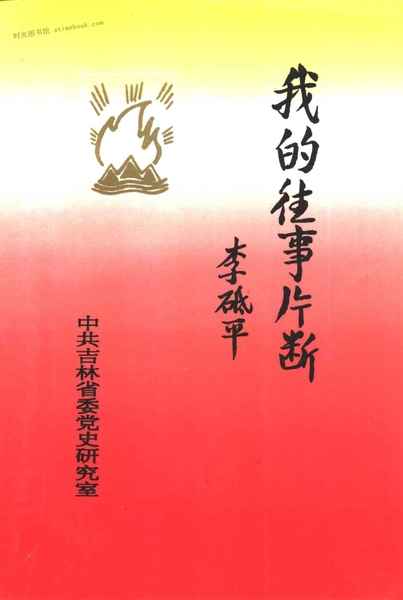 时光图书馆 atimebook.com
我的往事片断
李砥平
中共吉林省委党史研究室